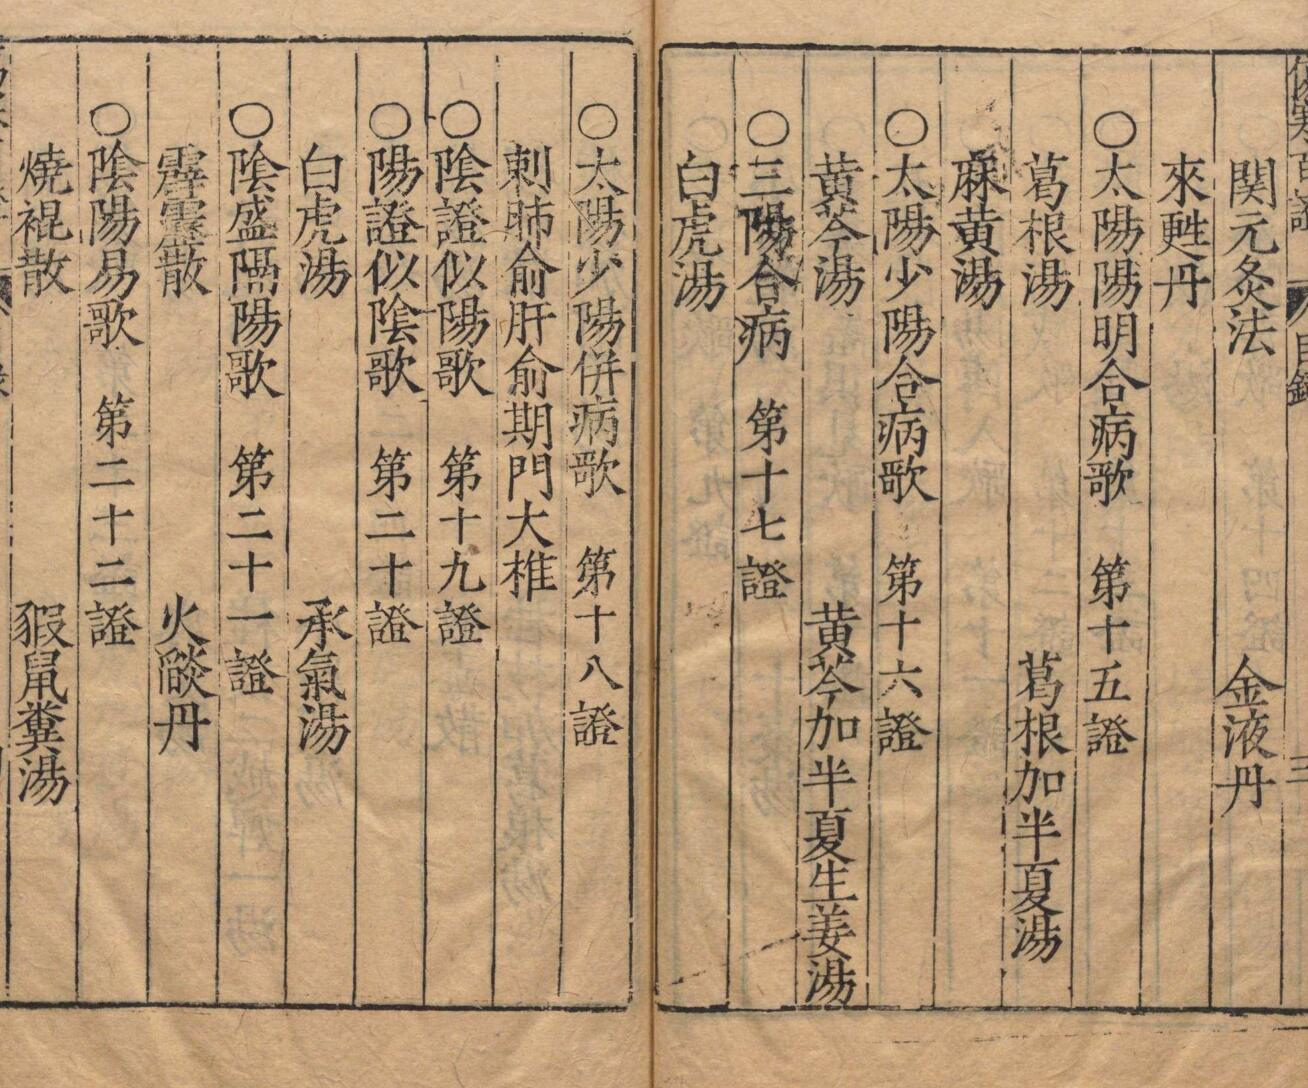 関元灸法 金液丹
來甦丹
○太陽陽明合病歌 第十五證
葛根湯 葛根加半夏湯
麻黄湯
○太陽少陽合病歌 第十六證
黄芩湯 黄芩加半夏生姜湯
○三陽合病 第十七證
白虎湯
○太陽少陽併病歌 第十八證
刺肺俞肝俞期門大椎
○陰證似陽歌 第十九證
○陽證似陰歌 第二十證
白虎湯 承氣湯
○陰盛隔陽歌 第二十一證
霹靂散 火燄丹
○陰陽易歌 第二十二證
燒裩散 豭鼠糞湯